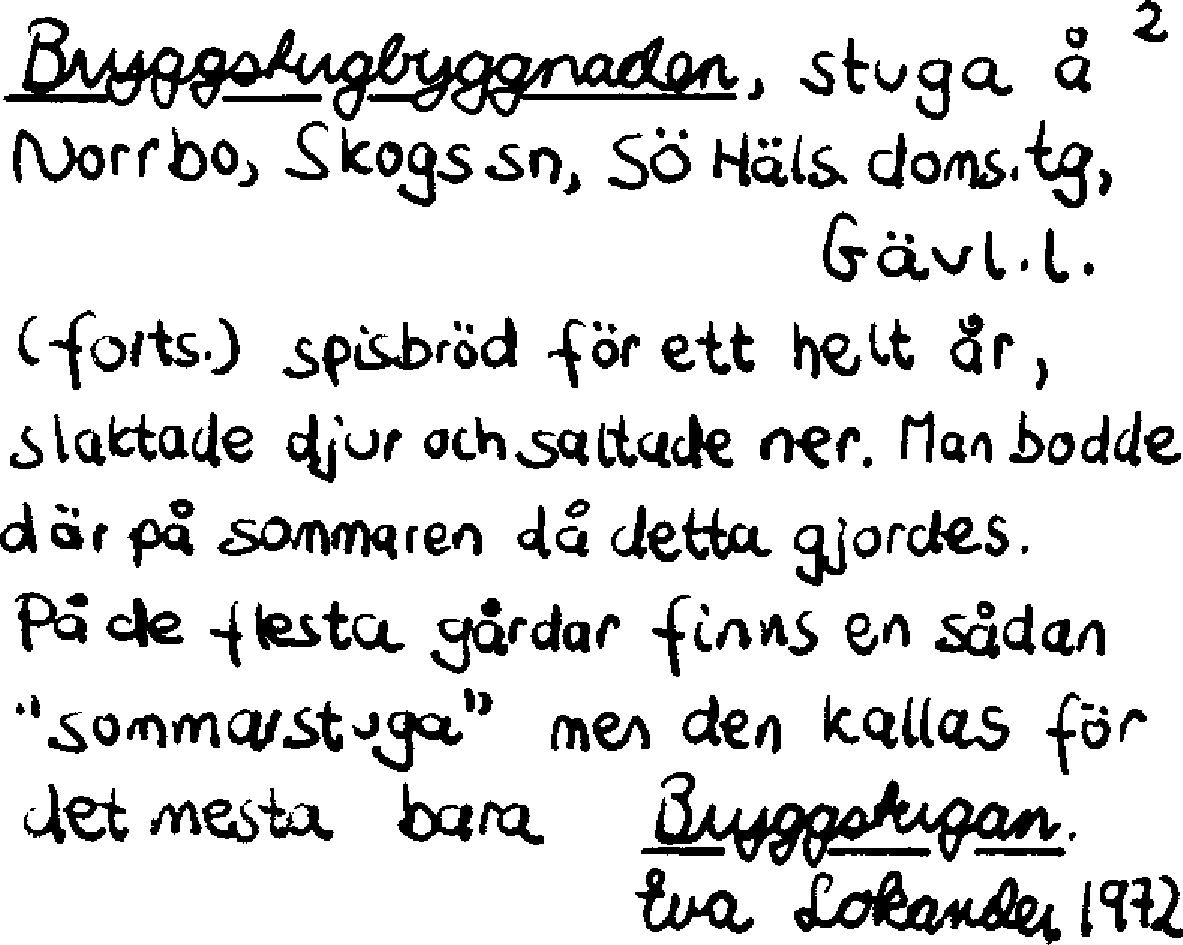 2
Bryggstugbyggnaden, stuga å
Norrbo, Skogs sn, Sö Häls. doms. tg,
Gävl. l.
(forts.) spisbröd för ett helt år,
slaktade djur och saltade ner. Man bodde
där på sommaren då detta gjordes.
På de flesta gårdar finns en sådan
"sommarstuga" men den kallas för
det mesta bara Bryggstugan.
Eva Lokander 1972